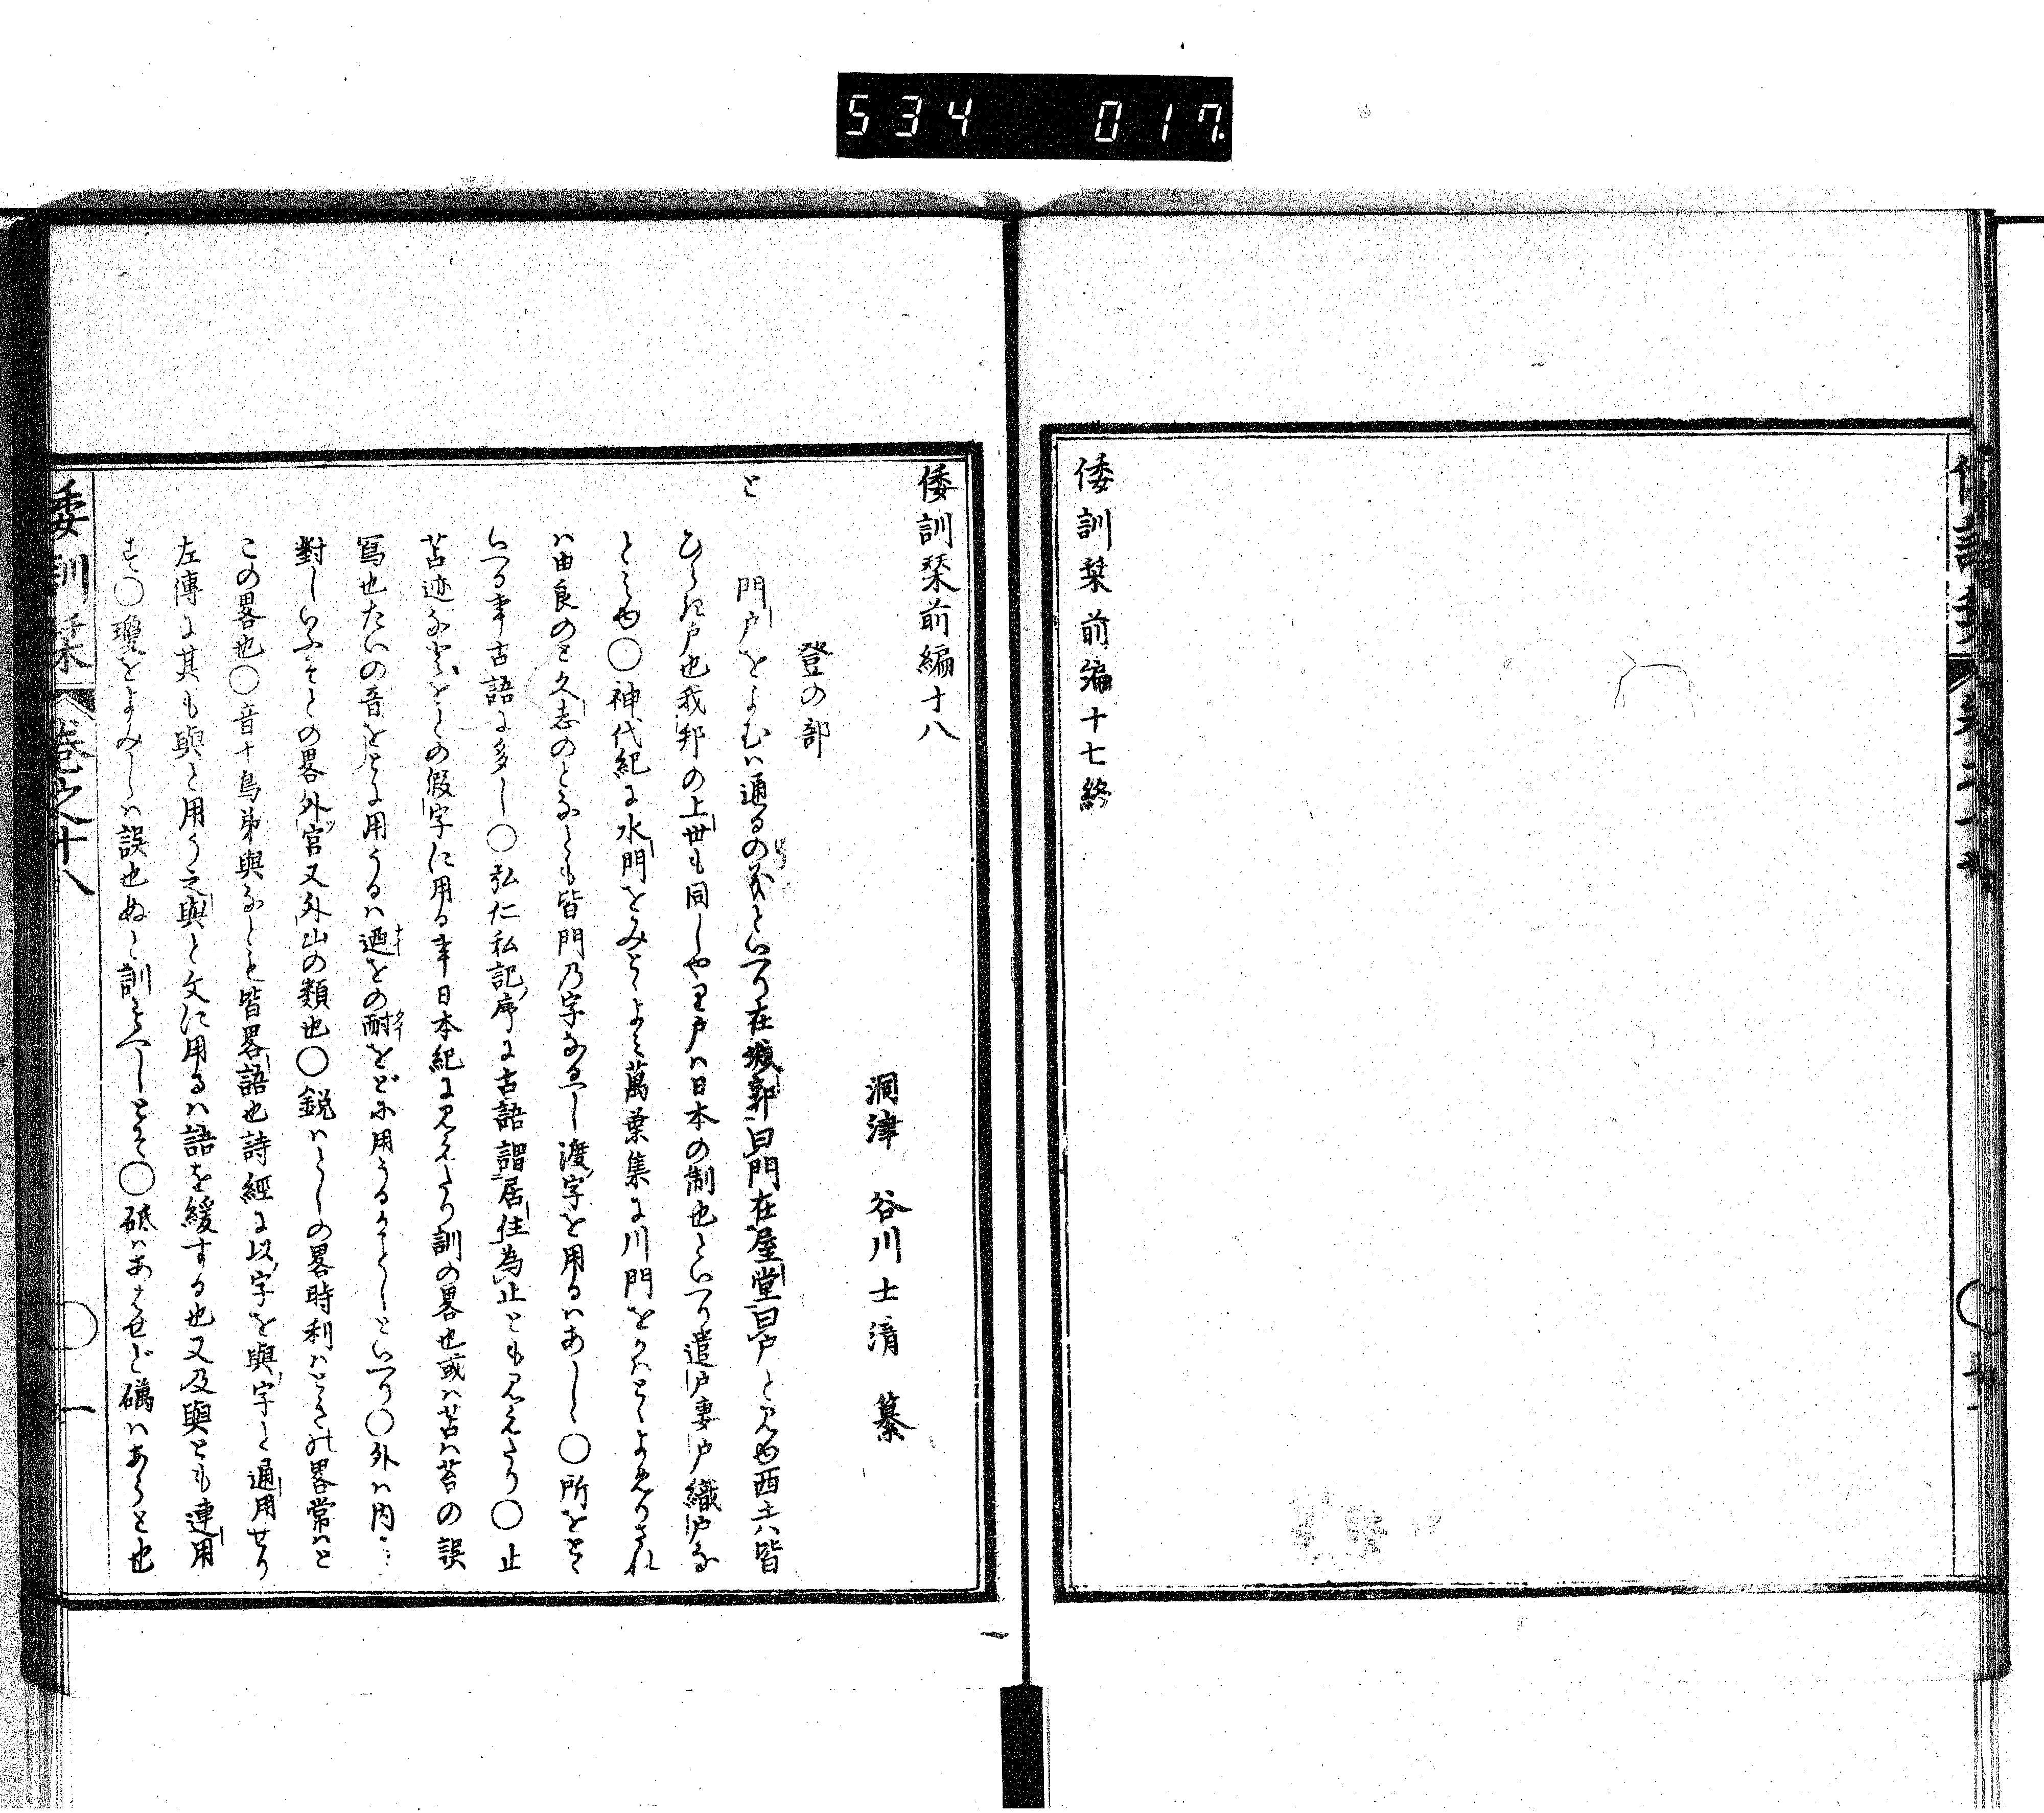 534 017
倭訓栞前編十七終
倭訓栞前編十八
洞津 谷川士清 纂
登の部
と
門戸をよむハ通るの義といへり在城郭曰門在屋堂曰戸と見ゆ西土ハ皆
ひらき戸也我邦の上世も同しやり戸ハ日本の制也といへり遣戸妻戸織戸な
とみゆ〇神代紀に水門をみとよみ萬葉集に川門をかはとよめりされ
ハ由良のと久志のとなとも皆門乃字なるへし渡字を用るハあしゝ〇所をと
いへる事古語に多し〇弘仁私記序に古語謂居住為止とも見えたり〇止
苫迹などをとの假字に用る事日本紀に見えたり訓の畧也或ハ苫ハ苔の誤
寫也たいの音をとに用うるハ廼をの耐をどに用うるかことしといへり〇外ハ内
對しいふそとの畧外官又外山の類也〇鋭ハとしの畧時利ハときの畧常ハと
この畧也〇音十鳥弟與なとも皆畧語也詩經に以字を與字と通用せり
左傳に其も與と用う之與と文に用るハ語を緩する也又及與とも連用
す〇瓊をよみしハ誤也ぬと訓すへしとそ〇砥ハあはせど礪ハあらと也
倭訓栞 巻之十八 一